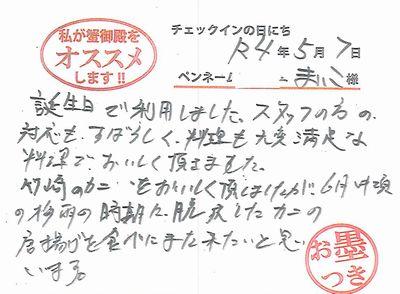 私が蟹御殿を
オススメ
します!!
チェックインの日にち
R4年5月7日
ペンネーム まいこ様
誕生日で利用しました。スタッフの方の
対応もすばらしく、料理も大変満足な
料理でおいしく頂きました。
竹崎のカニもおいしく頂しましたが、6月中頃
の梅雨の時期に脱皮したカニの
唐揚げを食べにまた来たいと思
います
お墨
つき